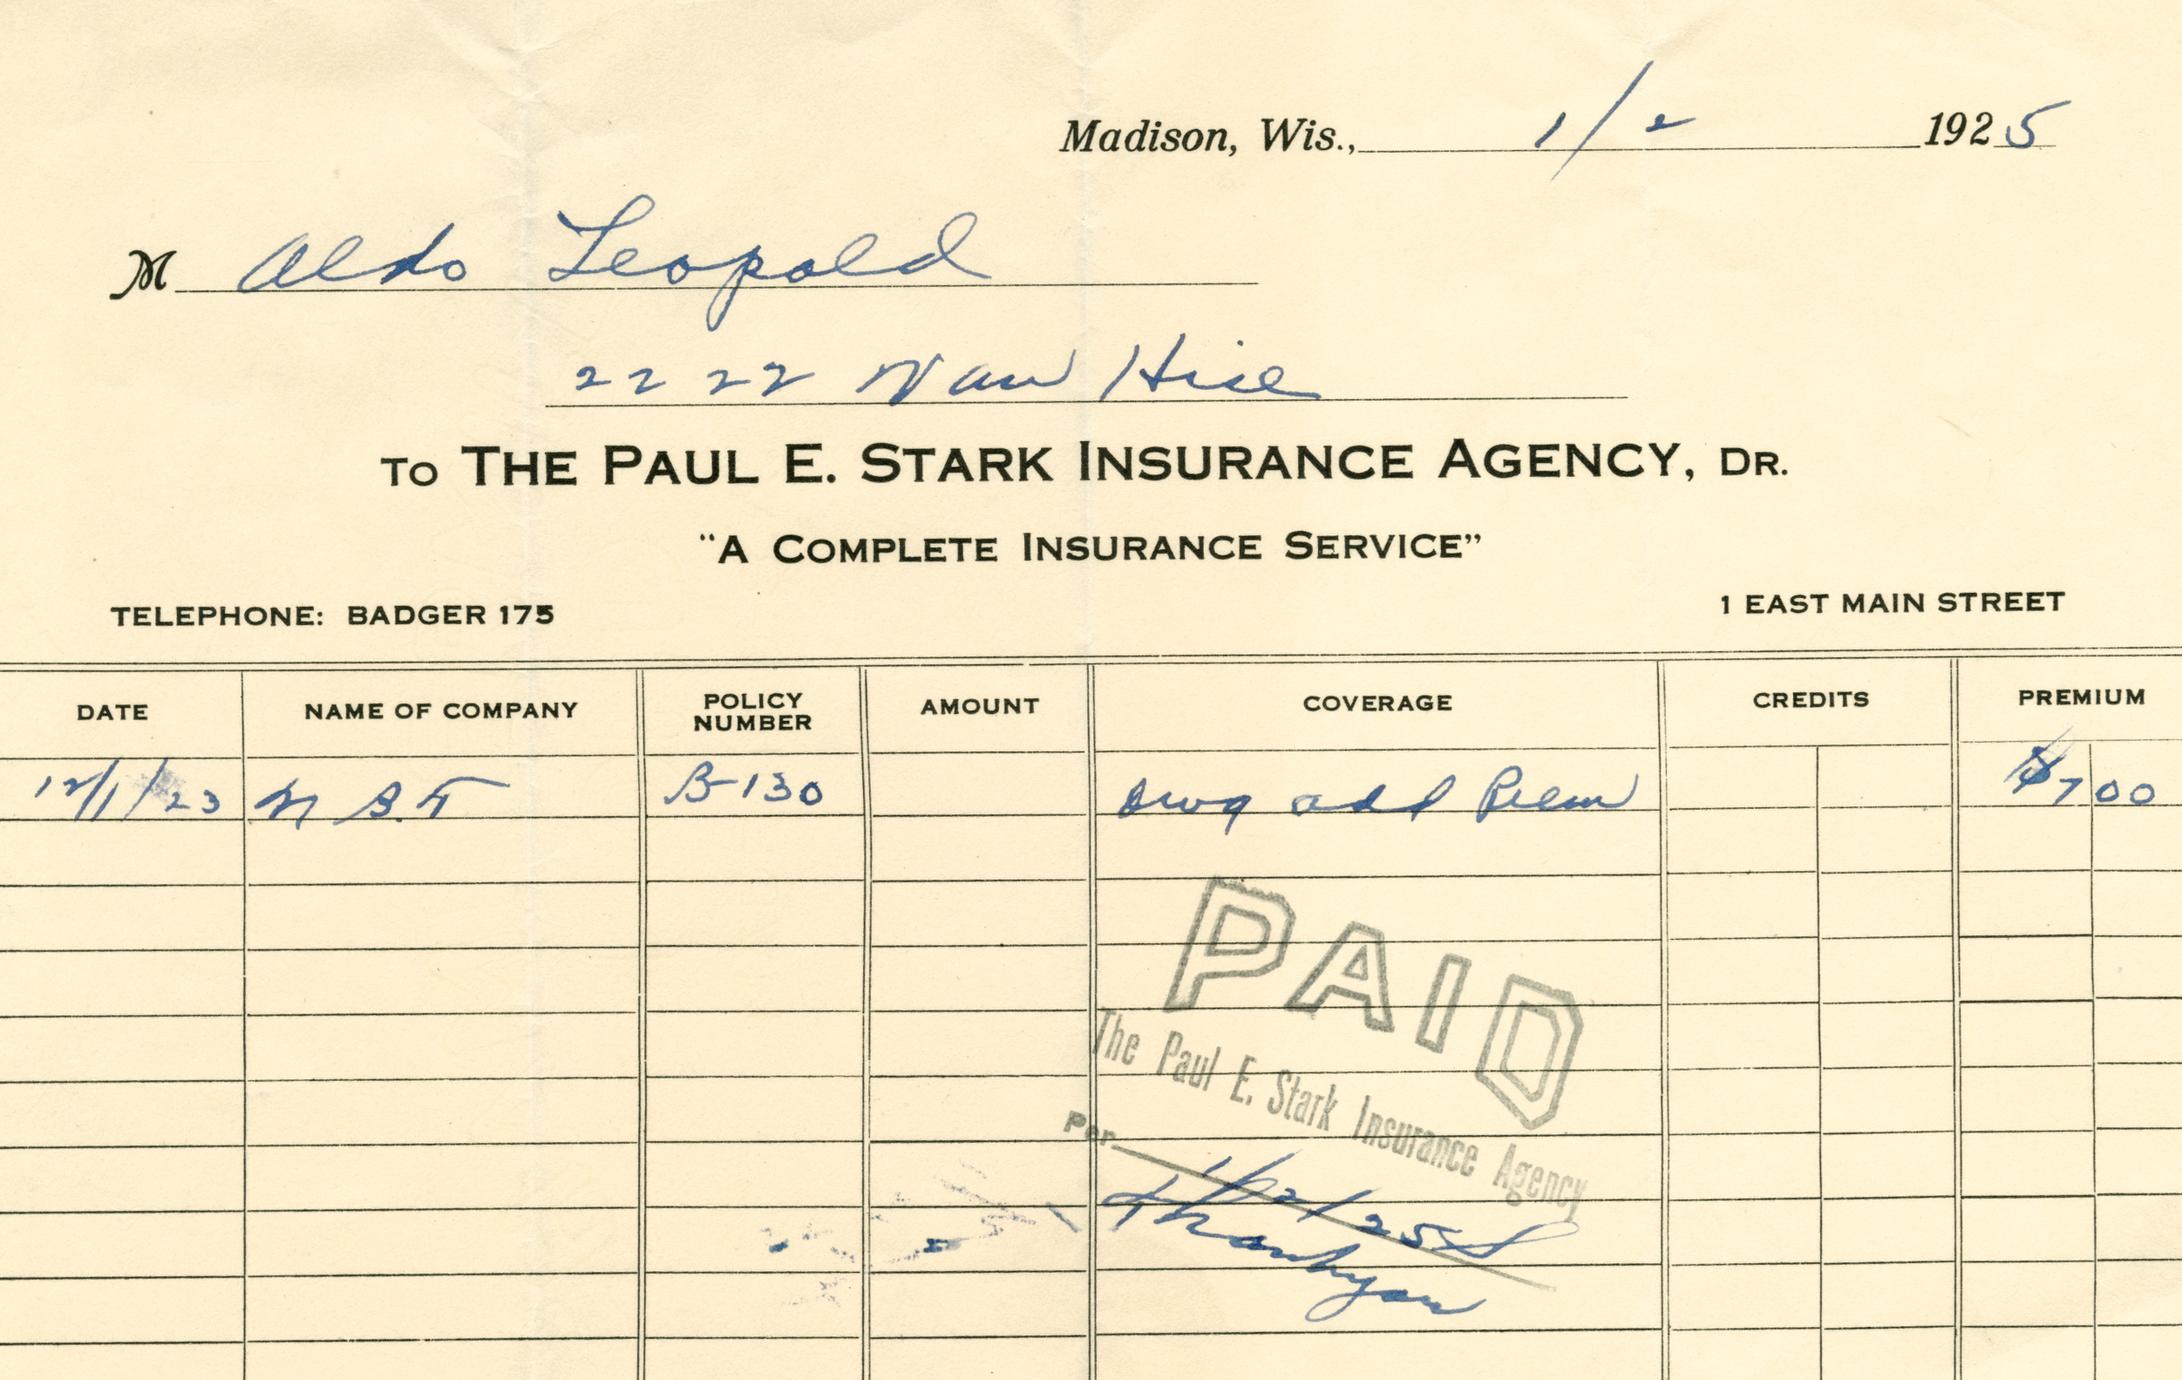 Madison, Wis., 1/2 1925
M Aldo Leopold
2222 Van Hise
TO THE PAUL E. STARK INSURANCE AGENCY, DR.
"A COMPLETE INSURANCE SERVICE"
TELEPHONE: BADGER 175 1 EAST MAIN STREET
DATE NAME OF COMPANY POLICY NUMBER AMOUNT COVERAGE CREDITS PREMIUM
12/1/23 B-130 Dwg add Prem $7 00
PAID
The Paul E. Stark Insurance Agency
Per
1/2/25
Thankyou